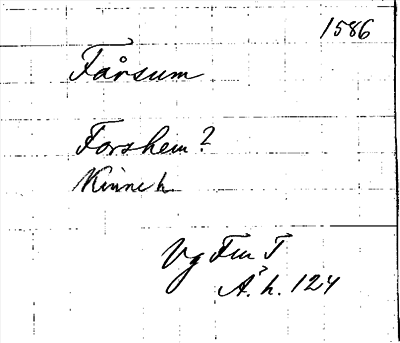 1586
Fårsum
Forshem?
Kinne h
Vg Fru T
Å. h. 124